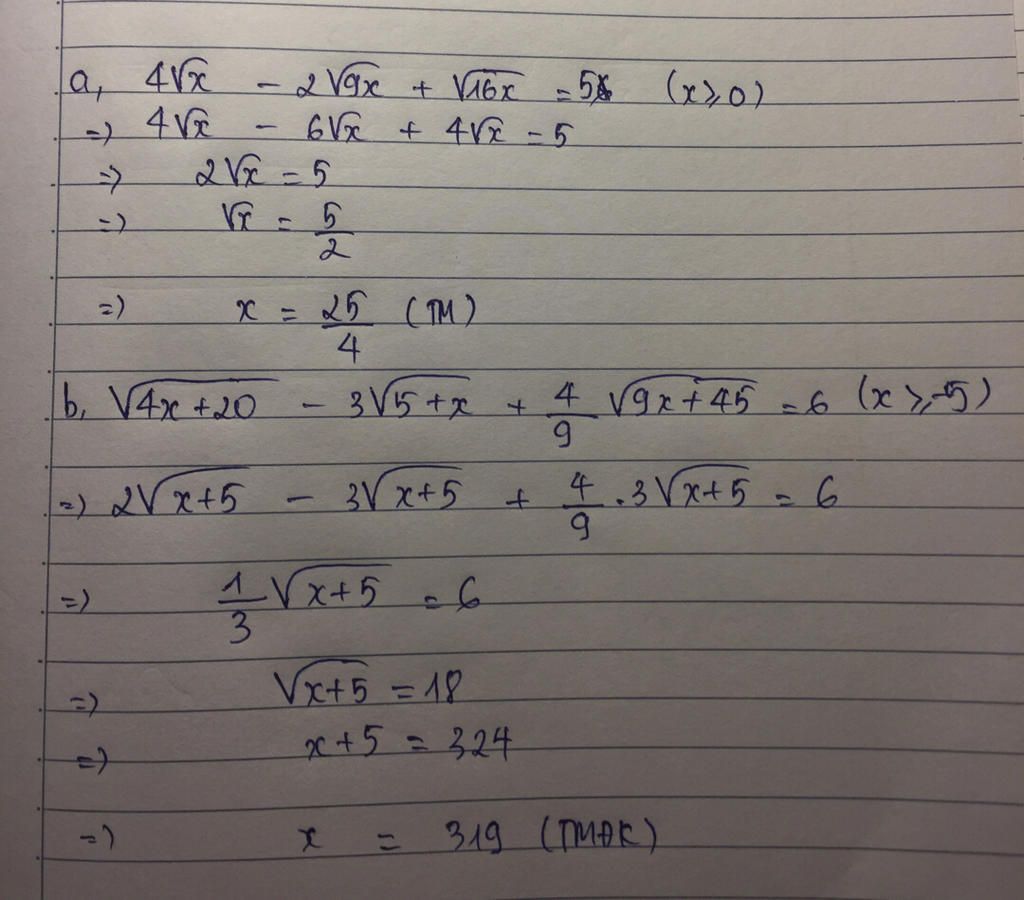 a, 4√x - 2√9x + √16x = 5 (x ≥ 0)
=> 4√x - 6√x + 4√x = 5
=> 2√x = 5
=> √x = 5/2
=> x = 25/4 (TM)
b, √(4x+20) - 3√(5+x) + 4/9 √(9x+45) = 6 (x ≥ -5)
=> 2√(x+5) - 3√(x+5) + 4/9 . 3√(x+5) = 6
=> 1/3 √(x+5) = 6
=> √(x+5) = 18
=> x+5 = 324
=> x = 319 (TMĐK)